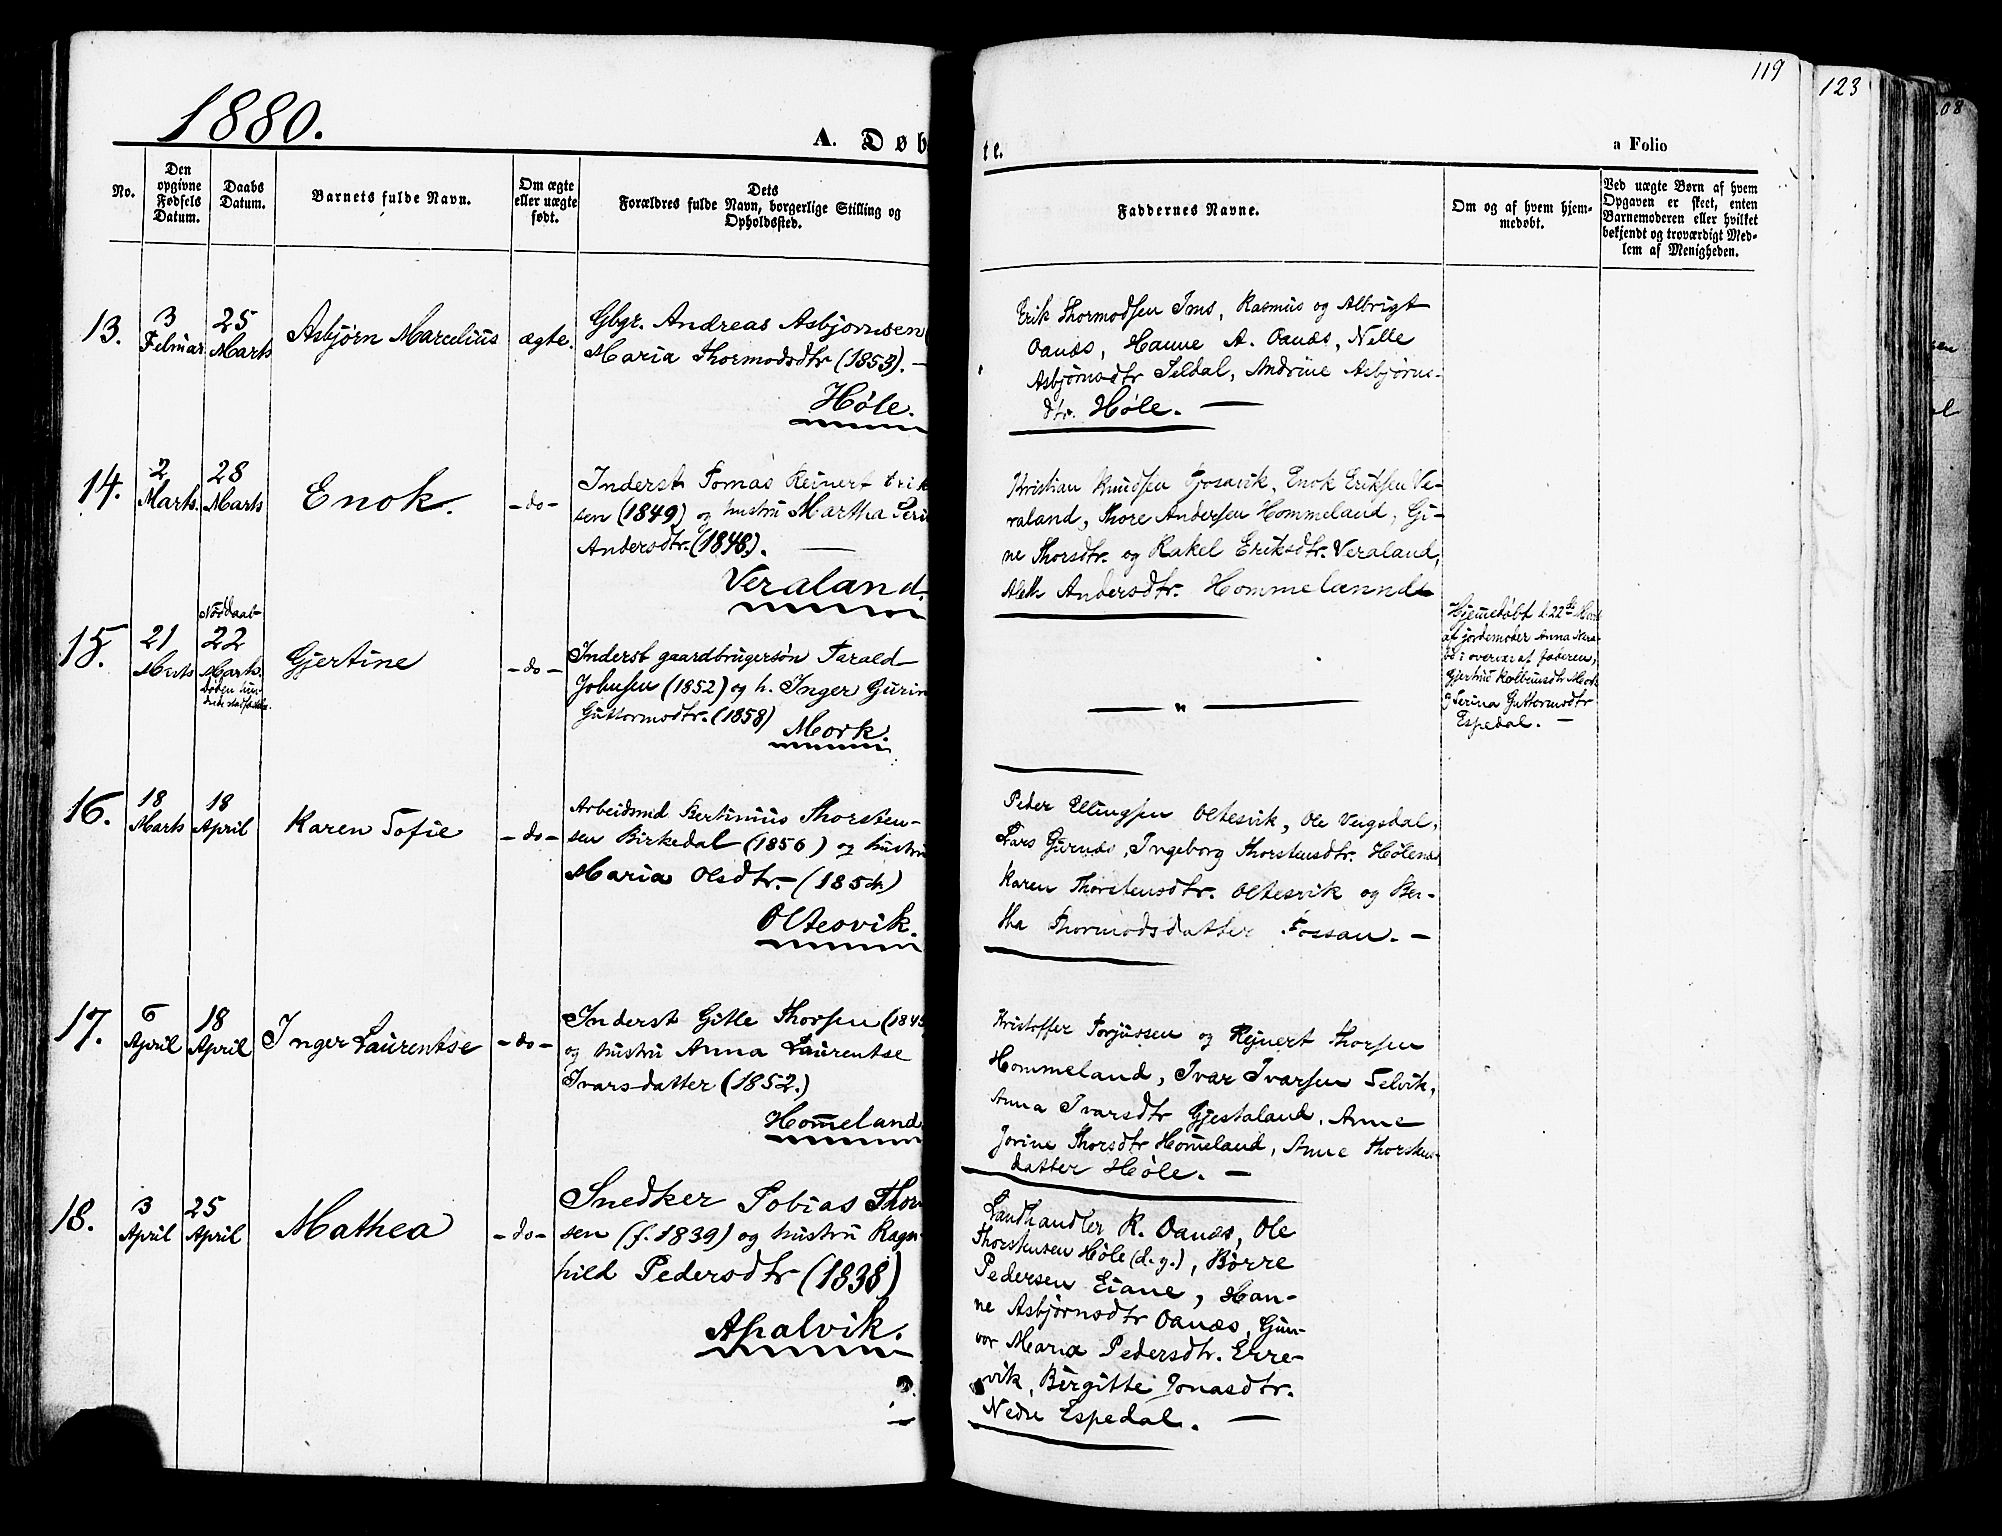 119
123
08
1880.
A. Døbte.
a Folio
No.
Den opgivne Fødsels Datum.
Daabs Datum.
Barnets fulde Navn.
Om ægte eller uægte født.
Dets Forældres fulde Navn, borgerlige Stilling og Opholdssted.
Faddernes Navne.
Om og af hvem hjemmedøbt.
Ved uægte Børn af hvem Opgaven er skeet, enten Barnemoderen eller hvilket bekjendt og troværdigt Medlem af Menigheden.
13.
3 Februar
25 Marts
Asbjørn Marcelius
ægte.
Gbgr. Andreas Asbjørnsen
Maria Thormodsdtr (1853). –
Høle.
Erik Thormodsen Ims, Rasmus og Albrigt
Oanæs, Hanne A. Oanæs, Nelle
Asbjørnsdtr Seldal, Andrine Asbjørns-
dtr. Høle. –
14.
2 Marts.
28 Marts
Enok.
– do –
Inderst Tomas Reinert Erik
sen (1849) og hustru Martha Seri
Andersdtr. (1848). –
Veraland.
Kristian Knudsen Gjosavik, Enok Eriksen Ve-
raland, Thore Andersen Hommeland, Gi-
ne Thorsdtr. og Rakel Eriksdtr. Veraland,
Andersdtr. Hommeland
15.
21 Marts
Nøddaab
22 Marts.
Gjertine
– do –
Inderst gaardbrugersøn Tarald
Johnsen (1852) og h. Inger Gurin
Guttormsdtr. (1858)
Mørk.
– " –
Hjemmedøbt d. 22de Marts
af jordemoder Anna
i overvær af faderen,
Guttormsdtr
Espedal. –
16.
18 Marts
18 April
Karen Sofie
– do –
Arbeidsmd Bertinius Thorsten-
sen Birkedal (1856) og hustru
Maria Olsdtr. – (1854)
Oltesvik.
Peder Ellingsen Oltesvik, Ole Veigsdal,
Lars Gjernæs, Ingeborg Thorstensdtr. Hølenæs
Karen Thorstensdtr. Oltesvik og Ber-
tha Thormodsdatter Fossan. –
17.
6 April
18 April
Inger Laurentse
– do –
Inderst Gitle Thorsen (1845
og hustru Anna Laurentse
Ivarsdatter (1852.)
Hommeland
Kristoffer Torjussen og Reinert Thorsen
Hommeland, Ivar Ivarsen Selvik,
Anna Ivarsdtr Gjestaland, Anne
Jorine Thorsdtr Hommeland, Anne Thorsten
datter Høle. –
18.
3 April
25 April
Mathea
– do –
Snedker Tobias Thor
sen (f. 1839) og hustru Ragn-
hild Pedersdtr (1838)
Apalvik.
Landhandler R. Oanæs, Ole
Thorstensen Høle (d. y.), Børre
Pedersen Eiane, Han-
ne Asbjørnsdtr Oanæs, Gun-
vor Maria Pedersdtr. Erre-
vik, Birgitte Jonasdtr.
Nedre Espedal. –